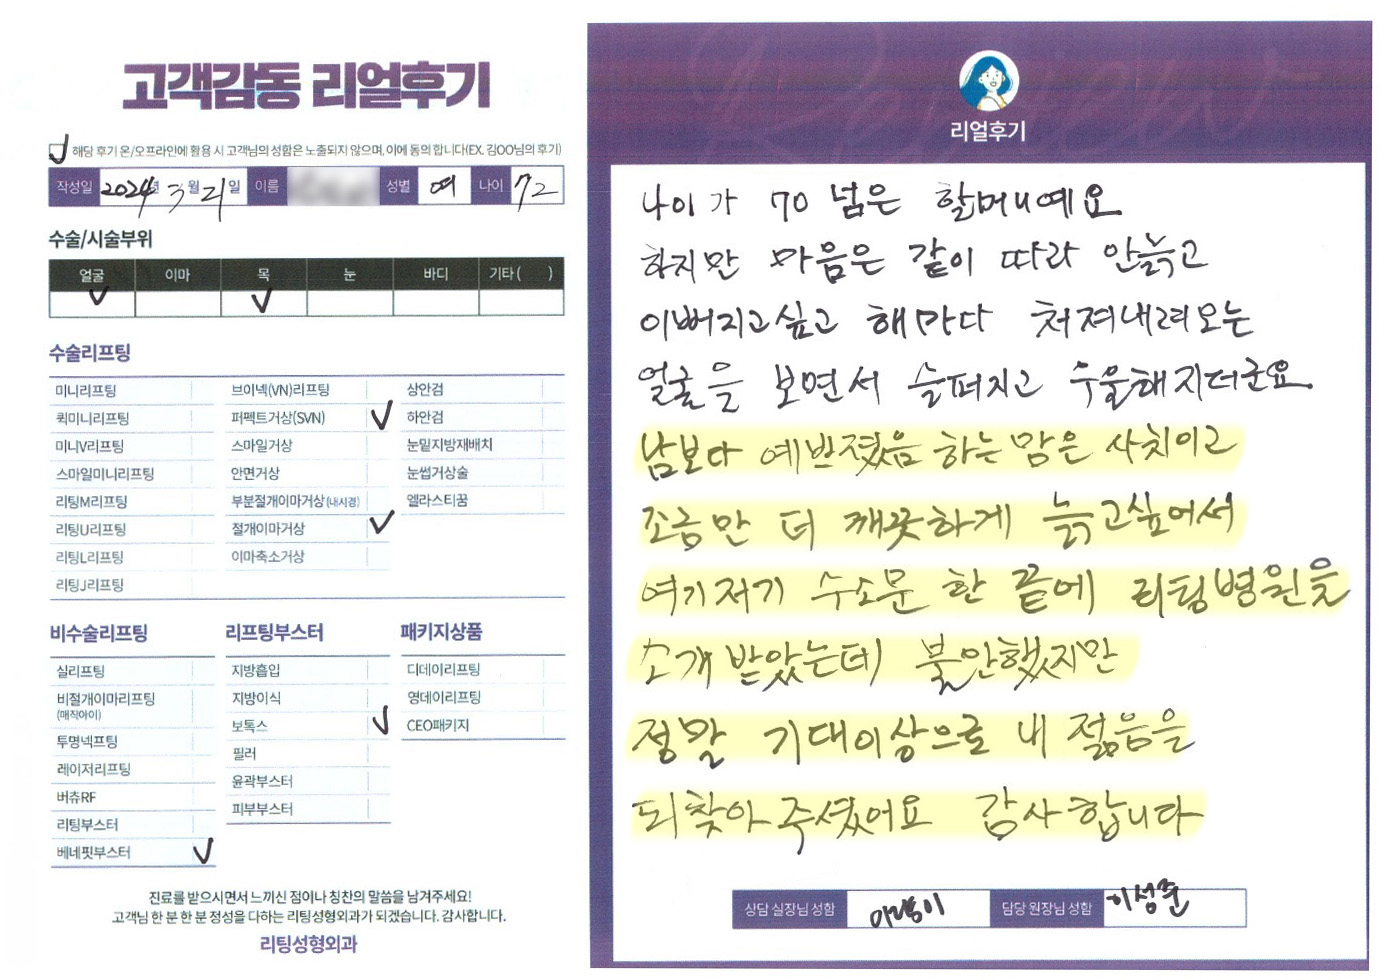 고객감동 리얼후기
해당 후기 온/오프라인에 활용 시 고객님의 성함은 노출되지 않으며, 이에 동의 합니다(EX. 김OO님의 후기)
작성일 2024년 3월 21일 이름 성별 여 나이 72
수술/시술부위
얼굴 이마 목 눈 바디 기타 ( )
수술리프팅
미니리프팅 브이넥(VN)리프팅 상안검
퀵미니리프팅 퍼펙트거상(SVN) 하안검
미니V리프팅 스마일거상 눈밑지방재배치
스마일미니리프팅 안면거상 눈썹거상술
리팅M리프팅 부분절개이마거상(내시경) 엘라스티꿈
리팅U리프팅 절개이마거상
리팅L리프팅 이마축소거상
리팅J리프팅
비수술리프팅 리프팅부스터 패키지상품
실리프팅 지방흡입 디데이리프팅
비절개이마리프팅 지방이식 영데이리프팅
(매직아이) 보톡스 CEO패키지
투명넥프팅 필러
레이저리프팅 윤곽부스터
버츄RF 피부부스터
리팅부스터
베네핏부스터
진료를 받으시면서 느끼신 점이나 칭찬의 말씀을 남겨주세요!
고객님 한 분 한 분 정성을 다하는 리팅성형외과가 되겠습니다. 감사합니다.
리팅성형외과
Review
리얼후기
나이가 70 넘은 할머니예요
하지만 마음은 같이 따라 안늙고
이뻐지고싶고 해마다 처져내려오는
얼굴을 보면서 슬퍼지고 우울해지더군요.
남보다 예뻐졌음 하는맘은 사치이고
조금만 더 깨끗하게 늙고싶어서
여기저기 수소문 한 끝에 리팅병원을
소개 받았는데 불안했지만
정말 기대이상으로 내 젊음을
되찾아 주셨어요 감사합니다
상담 실장님 성함 담당 원장님 성함 이성준